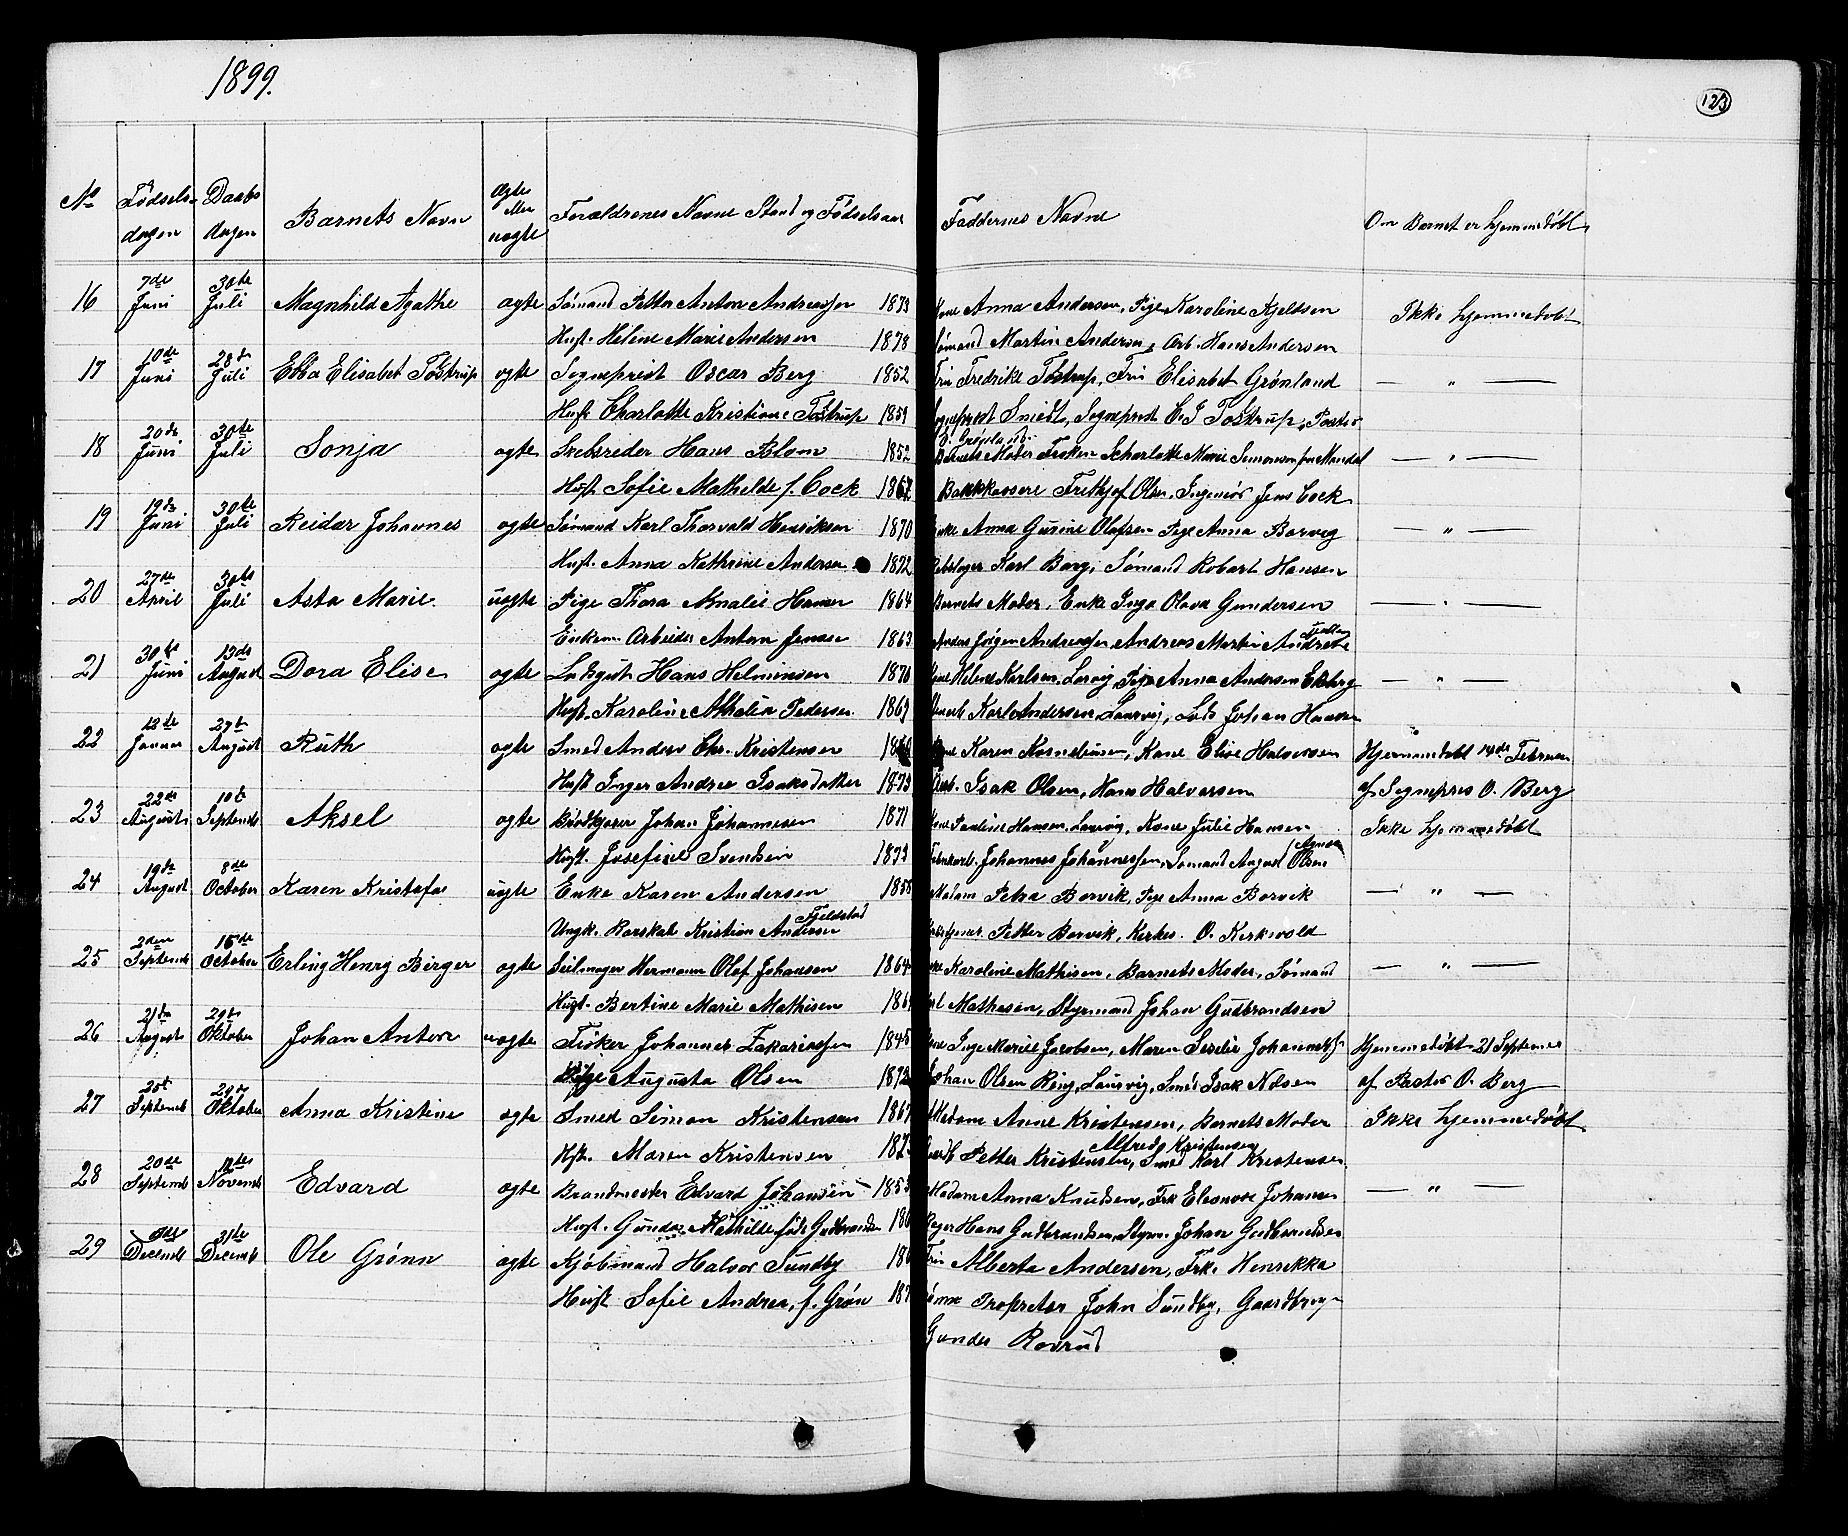 1899.
123
No Fødsels- dagen Daabs dagen Barnets Navn ægte eller uægte Forældrenes Navne Stand og Fødselsaar Faddernes Navne Om Barnet er hjemmedøbt
16 7de Juni 30te Juli Magnhild Agathe ægte Sømand Petter Anton Andreassen 1873 Kone Anna Andersen, Pige Karoline Kjeldsen Ikke hjemmedøbt
Hust. Helene Marie Andersen 1878 Sømand Martin Andersen, Arb. Hans Andersen
17 10de Juni 28de Juli Ebba Elisabet Tostrup ægte Sogneprest Oscar Berg 1852 Fru Fredrikke Tostrup, Fru Elisabet Grønland — " —
Hust. Charlotte Kristiane Tostrup 1859 Sogneprest Smidt, Sogneprest C. J. Tostrup, Pastor
18 20de Juni 30te Juli Sonja ægte Skibsreder Hans Blom 1852 Barnets Moder Frøken Scharlotte Marie Simonsen fra Mandal — " —
Hust. Sofie Mathilde f. Cock 1862 Bankkasserer Frithjof Olsen, Ingeniør Jens Cock
19 19de Juni 30te Juli Reidar Johannes ægte Sømand Karl Thorvald Henriksen 1870 Enke Anna Gurine Olafsen Pige Anna Borvig — " —
Hust. Anna Kathrine Andersen 1872 Karl Berg, Sømand Robert Hansen
20 27de April 30te Juli Asta Marie uægte Pige Thora Amalie Hansen 1864 Barnets Moder, Enke Inga Olava Gundersen — " —
Enkem. Arbeider Anton Jensen 1863 Jørgen Andreassen, Andreas Martin
21 30te Juni 13de August Dora Elise ægte Hans Helminsen 1870 Kone Helene Karlsen, Larvig, Pige Anna Andersen Ekberg — " —
Hust. Karoline Athalia Pedersen 1869 Karl Andersen, Laurvig, Lods Johan Hansen
22 13de Januar 27de August Ruth ægte Smed Anders Chr. Kristensen Kone Karen Korneliusen, Kone Elise Halvorsen Hjemmedøbt 14de Februar
Hust Inger Andrea Isaksdatter 1873 Arb. Isak Olsen, Hans Halvorsen af Sognepres O. Berg
23 22de August 10de Septemb Aksel ægte Johan Johannesen 1871 Kone Pauline Hansen, Laurvig, Kone Julie Hansen Ikke hjemmedøbt
Hust. Josefine Svendsen 1873 Johannes Johannessen, Sømand August Olsen
24 19de August 8de October Karen Kristofa uægte Enke Karen Andersen 1858 Madam Petra Borvik, Pige Anna Borvik — " —
Ungk. Kristian Andersen Fjeldstad Petter Borvik, Kirkes. O. Kirkevold
25 2den Septemb 15de October Erling Henry Birger ægte Seilmager Hermann Olaf Johansen 1864 Karoline Mathisen, Barnets Moder, Sømand — " —
Hust. Bertine Marie Mathisen Mathisen, Styrmand Johan Gudbrandsen
26 21de August 29de Oktober Johan Anton uægte Fisker Johannes Zakariassen 1845 Inge Marie Jacobsen, Maren Serelie Johannessen Hjemmedøbt 21 Septemer
Pige Augusta Olsen 1872 Johan Olsen Ring, Laurvig, Smed Isak Nilsen af Pastor O. Berg
27 20de Septemb 29de Oktober Anna Kristine ægte Smed Simon Kristensen 1867 Madam Anne Kristensen, Barnets Moder Ikke hjemmedøbt
Hust. Maren Kristensen Petter Kristensen, Alfreds Kristensen Smed Karl Kristensen
28 20de Septemb Novemb Edvard ægte Brandmester Edvard Johansen Madam Anna Knudsen, Frk Eleonore Johansen — " —
Hust. Gunda Mathilde født Gudbrandsen Hans Gudbrandsen, Styrm. Johan Gudbrandsen
29 Decemb 31te Decemb Ole Grønn ægte Kjøbmand Halvor Sundby Fru Alberta Andersen, Frk. Henrikka
Hust Sofie Andrea, f. Grøn Propretær John Sundby, Gaardbruger
Gunder Rovrud